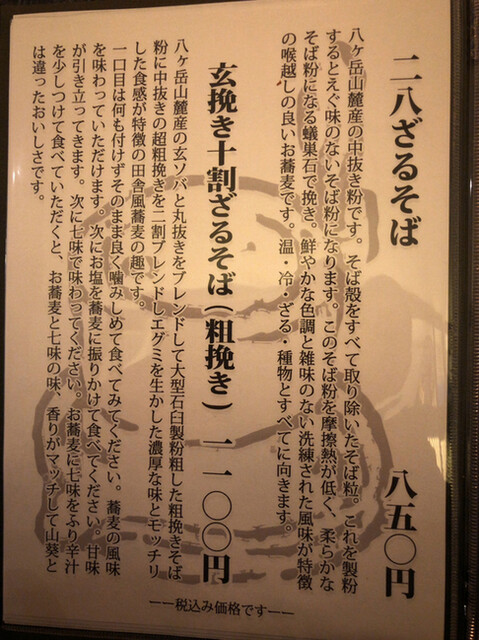 二八ざるそば 八五〇円
八ヶ岳山麓産の中抜き粉です。そば殻をすべて取り除いたそば粒。これを製粉
するとえぐ味のないそば粉になります。このそば粉を摩擦熱が低く、柔らかな
そば粉になる蟻巣石で挽き。鮮やかな色調と雑味のない洗練された風味が特徴
の喉越しの良いお蕎麦です。温・冷・ざる・種物とすべてに向きます。
玄挽き十割ざるそば(粗挽き) 一一〇〇円
八ヶ岳山麓産の玄ソバと丸抜きをブレンドして大型石臼製粉粗した粗挽きそば
粉に中抜きの超粗挽きを二割ブレンドしエグミを生かした濃厚な味とモッチリ
した食感が特徴の田舎風蕎麦の趣です。
一口目は何も付けずそのまま良く噛みしめて食べてみてください。蕎麦の風味
を味わっていただけます。次にお塩を蕎麦に振りかけて食べてください。甘味
が引き立ってきます。次に七味で味わってください。お蕎麦に七味をふり辛汁
を少しつけて食べていただくと、お蕎麦と七味の味、香りがマッチして山葵と
は違ったおいしさです。
ーー税込み価格ですーー